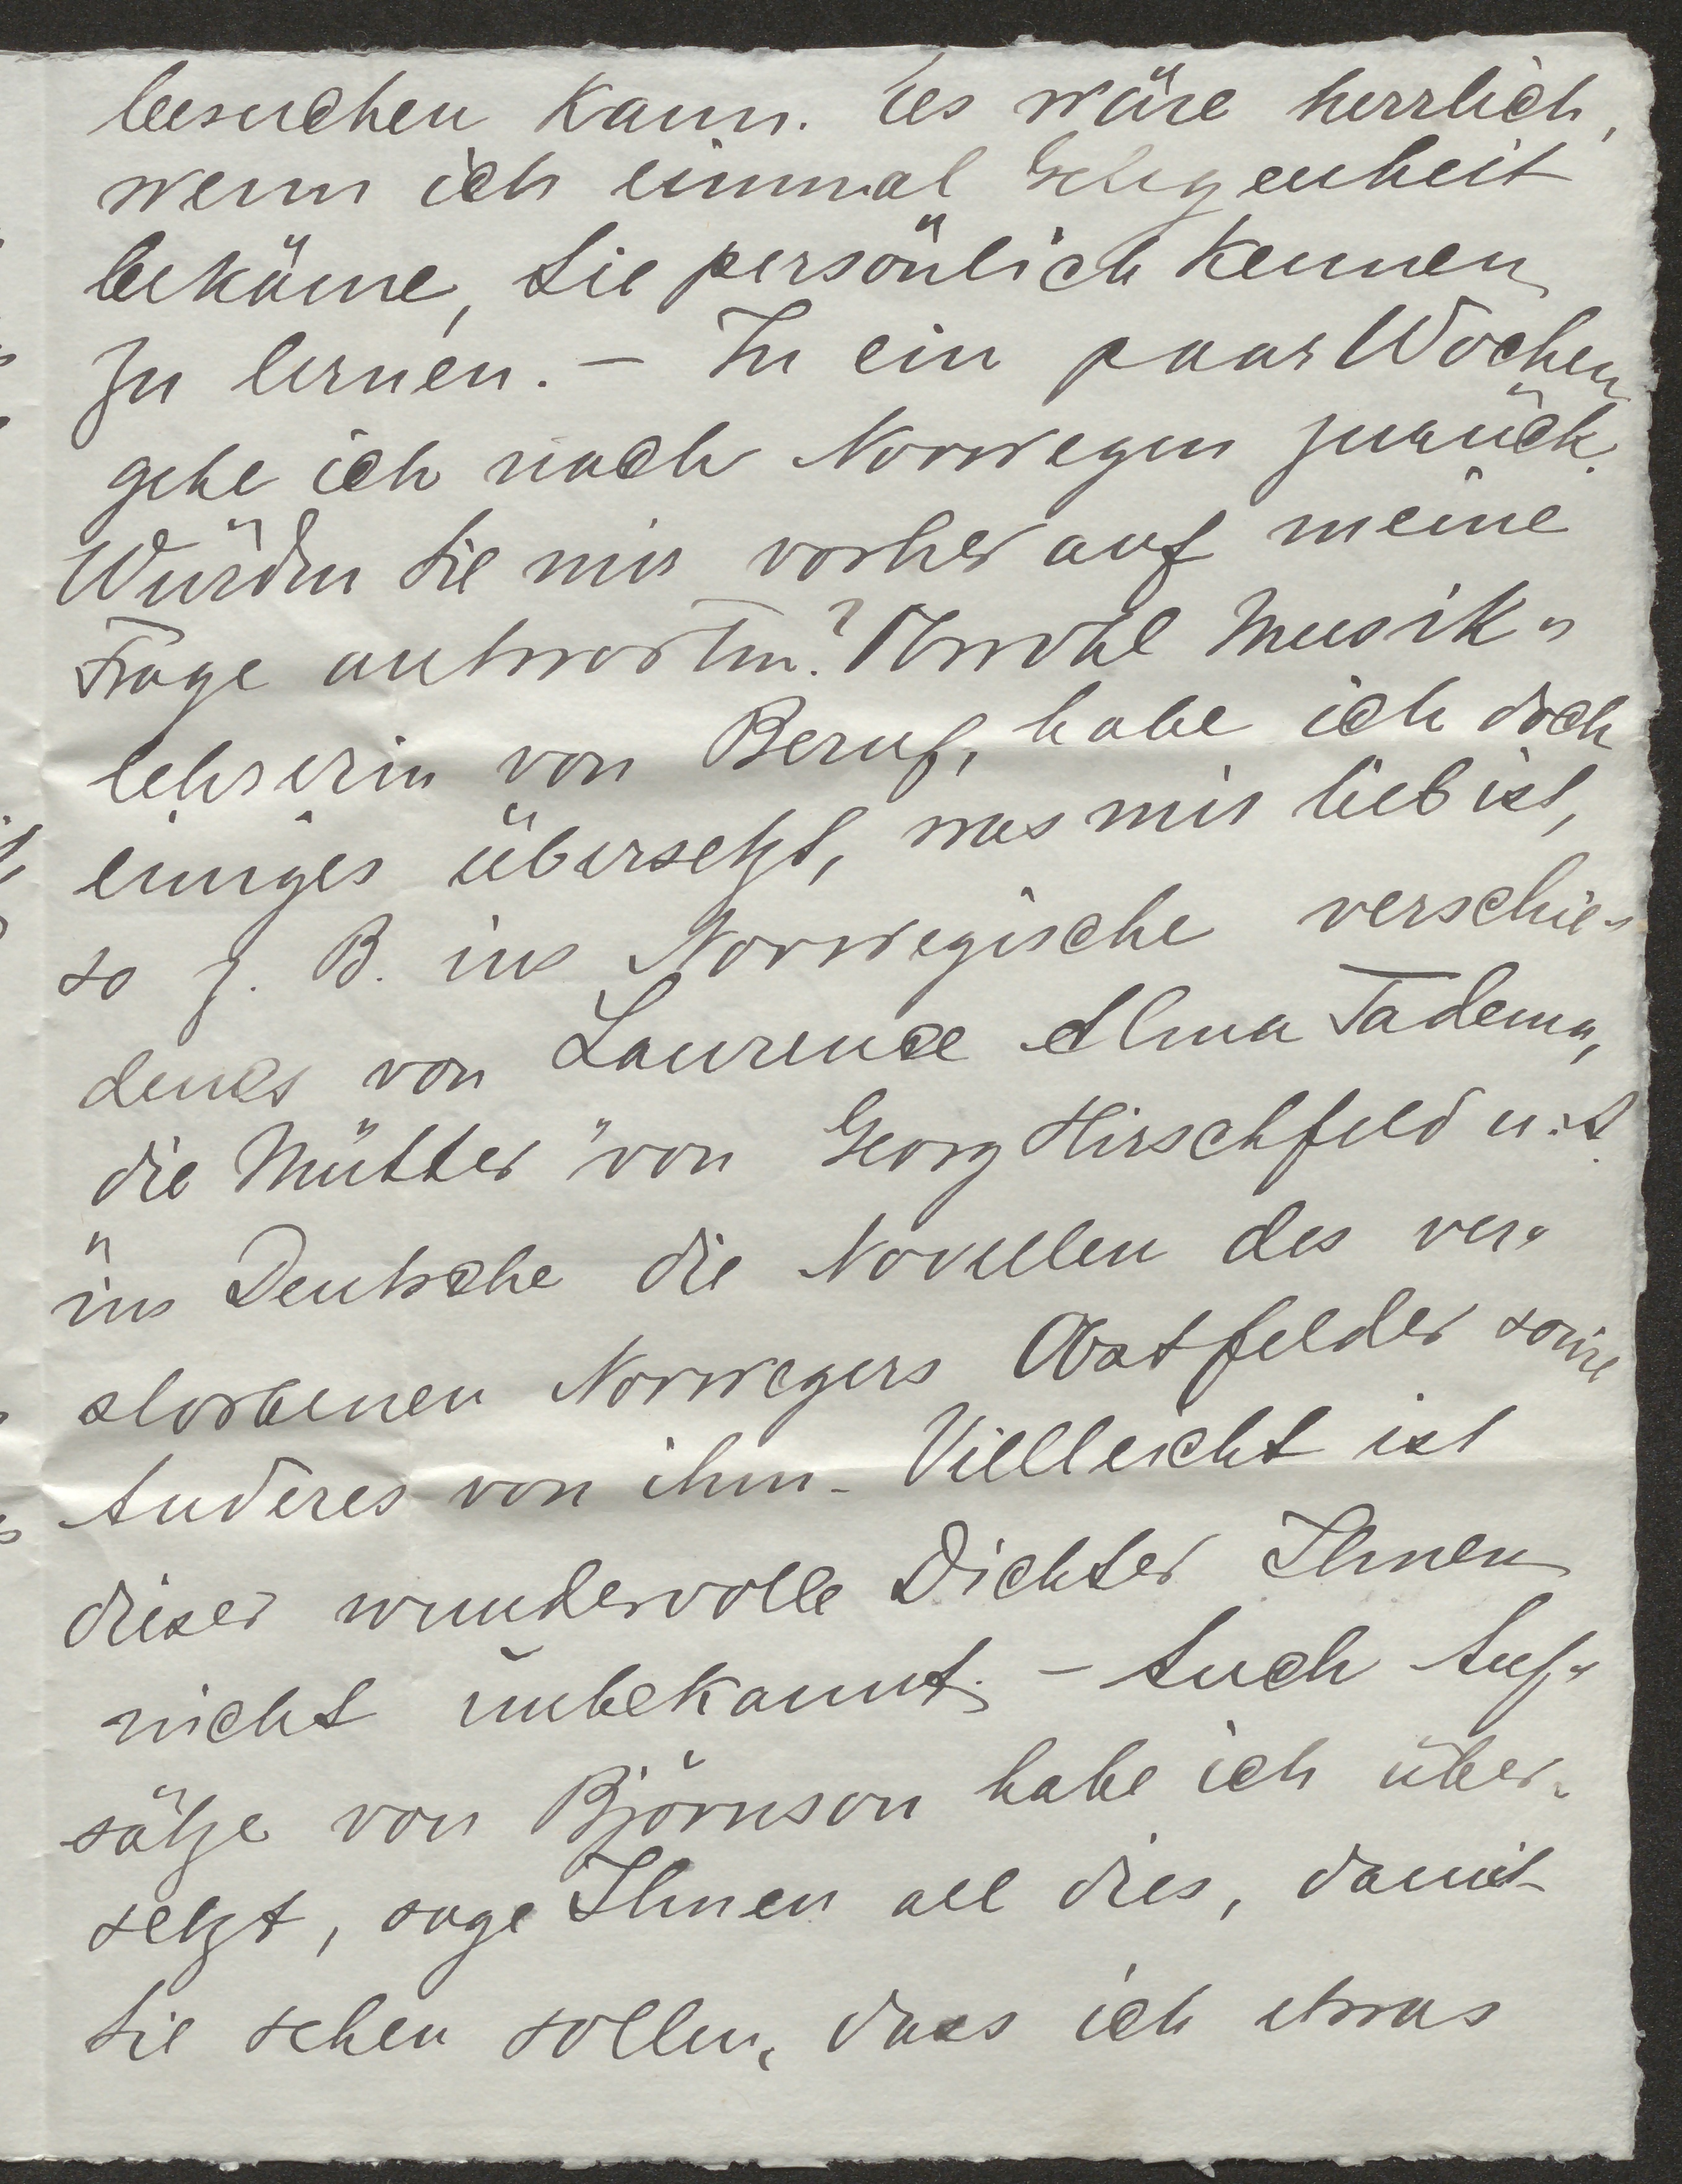 besuchen kann. Es wäre herrlich,
wenn ich einmal Gelegenheit
bekäme, Sie persönlich kennen
zu lernen. – In ein paar Wochen
gehe ich nach Norwegen zurück.
Würden Sie mir vorher auf meine
Frage antworten? Obwohl Musik-
lehrerin von Beruf, habe ich doch
einiges übersetzt, was mir lieb ist,
so z. B. ins Norwegische verschie-
denes von Laurence Alma Tadema,
die Mütter" von Georg Hirschfeld u.
ins Deutsche die Novellen des ver-
storbenen Norwegers Obstfelder sowie
Anderes von ihm – Vielleicht ist
dieser wundervolle Dichter Ihnen
nicht unbekannt. – Auch Auf-
sätze von Björnson habe ich über-
setzt, sage Ihnen all dies, damit
Sie sehen sollen, dass ich etwas